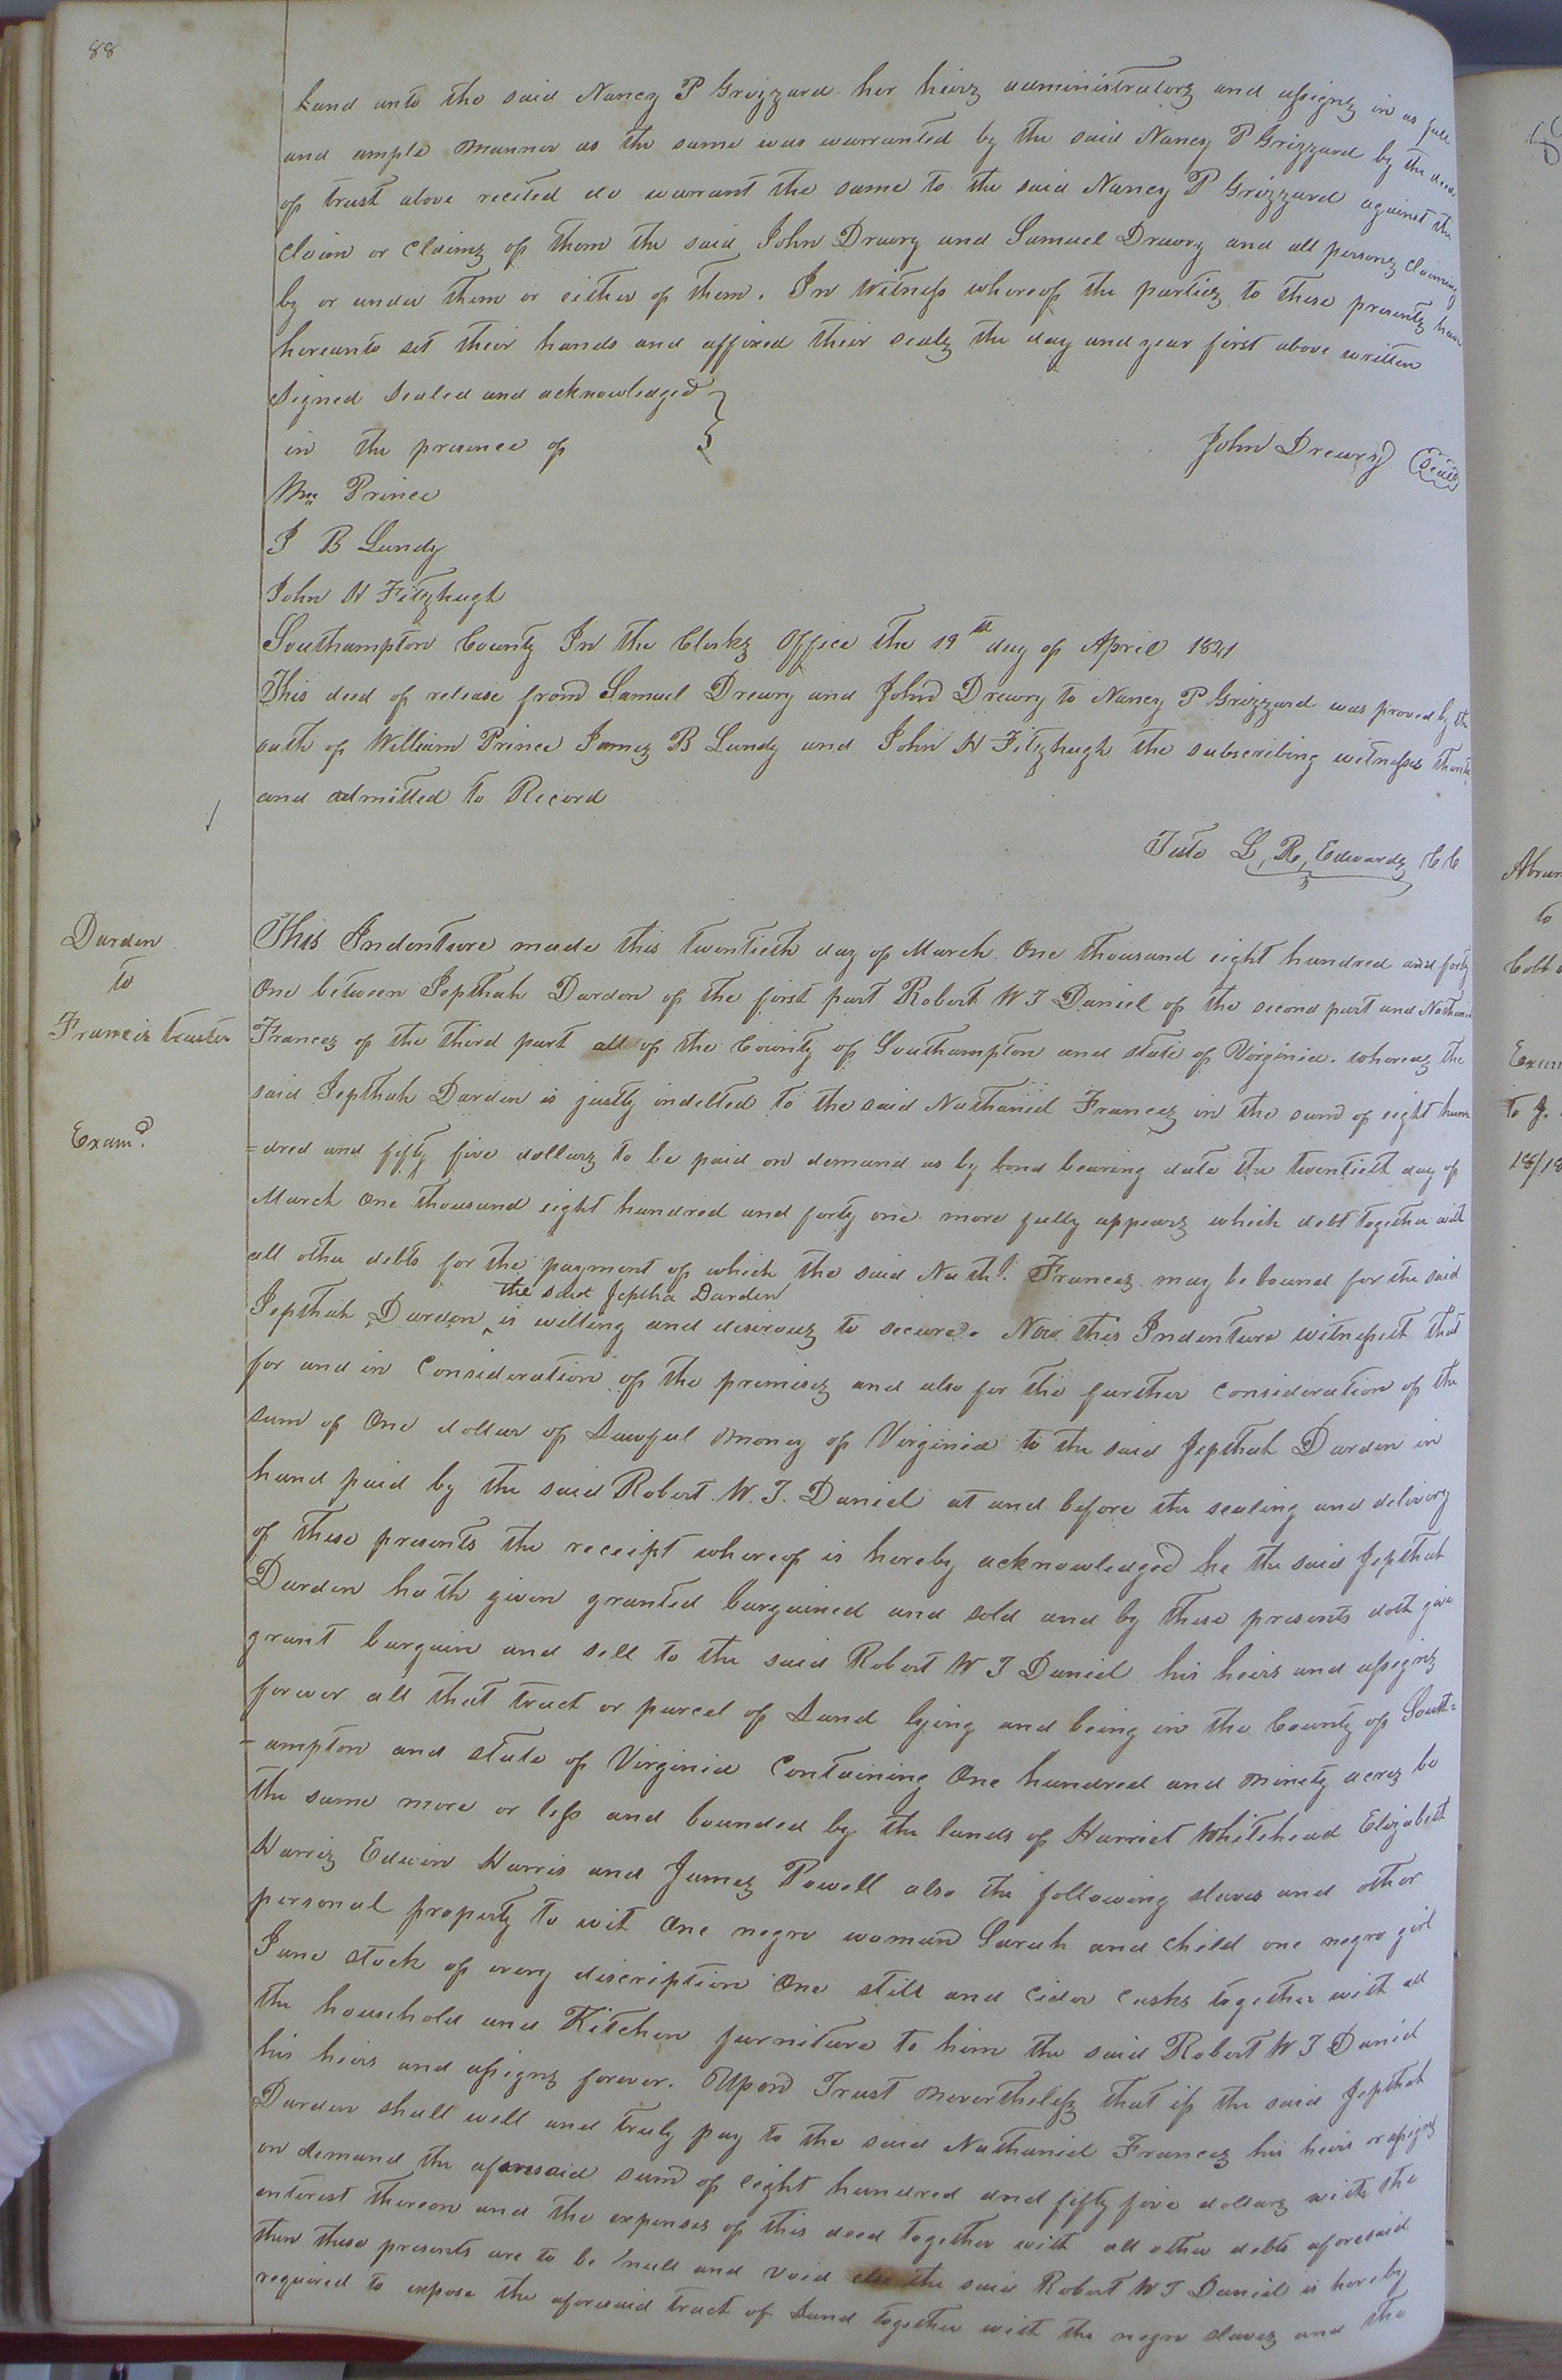 88
Land unto the said Nancy P Grizzard her heirs administrators and assigns in as full
and ample manner as the same was warranted by the said Nancy P Grizzard by the deed
of trust above recited do warrant the same to the said Nancy P Grizzard against the
claim or claims of them the said John Drewry and Samuel Drewry and all persons claiming
by or under them or either of them. In Witness whereof the parties to these presents have
hereunto set their hands and affixed their seals the day and year first above written
Signed Sealed and acknowledged }
in the presence of
John Drewry (Seal)
Wm Prince
J B Lundy
John H Fitzhugh
Southampton County In the Clerks Office the 19th day of April 1841
This deed of release from Samuel Drewry and John Drewry to Nancy P Grizzard was proved by the
oath of William Prince James B Lundy and John H Fitzhugh the subscribing witnesses thereto
and admitted to Record
Teste L, R, Edwards CC
Darden
to
Francis trustee
Examd.
This Indenture made this twentieth day of March One thousand eight hundred and forty
One between Jepthah Darden of the first part Robert W J Daniel of the second part and Nathaniel
Frances of the third part all of the County of Southampton and state of Virginia. whereas the
said Jepthah Darden is justly indebted to the said Nathaniel Frances in the sum of eight hun
=dred and fifty five dollars to be paid on demand as by bond bearing date the twentieth day of
March One thousand eight hundred and forty one more fully appears which debt together with
all other debts for the payment of which the said Nathl. Frances may be bound for the said
the said Jeptha Darden
Jepthah Darden ^ is willing and desirous to secure. Now this Indenture witnesseth that
for and in Consideration of the premises and also for the further consideration of the
sum of One dollar of Lawful money of Virginia to the said Jepthah Darden in
hand paid by the said Robert W. J. Daniel at and before the sealing and delivery
of these presents the receipt whereof is hereby acknowledged he the said Jepthah
Darden hath given granted bargained and sold and by these presents doth give
grant bargain and sell to the said Robert W J Daniel his heirs and assigns
forever all that tract or parcel of Land lying and being in the County of South=
-ampton and state of Virginia Containing One hundred and ninety acres be
the same more or less and bounded by the lands of Harriet Whitehead Elizabeth
Harris Edwin Harris and James Powell also the following slaves and other
personal property to wit One negro woman Sarah and child one negro girl
Jane stock of every discription One still and Cider Casks together with all
the household and Kitchen furniture to him the said Robert W J Daniel
his heirs and assigns forever. Upon Trust nevertheless that if the said Jepthah
Darden shall well and truly pay to the said Nathaniel Frances his heirs or assigns
on demand the aforesaid sum of eight hundred and fifty five dollars with the
interest thereon and the expenses of this deed together with all other debts aforesaid
then these presents are to be null and void else the said Robert W J Daniel is hereby
required to expose the aforesaid tract of Land together with the negro slaves and the
Abram
to
Cobb
Exam
to J.